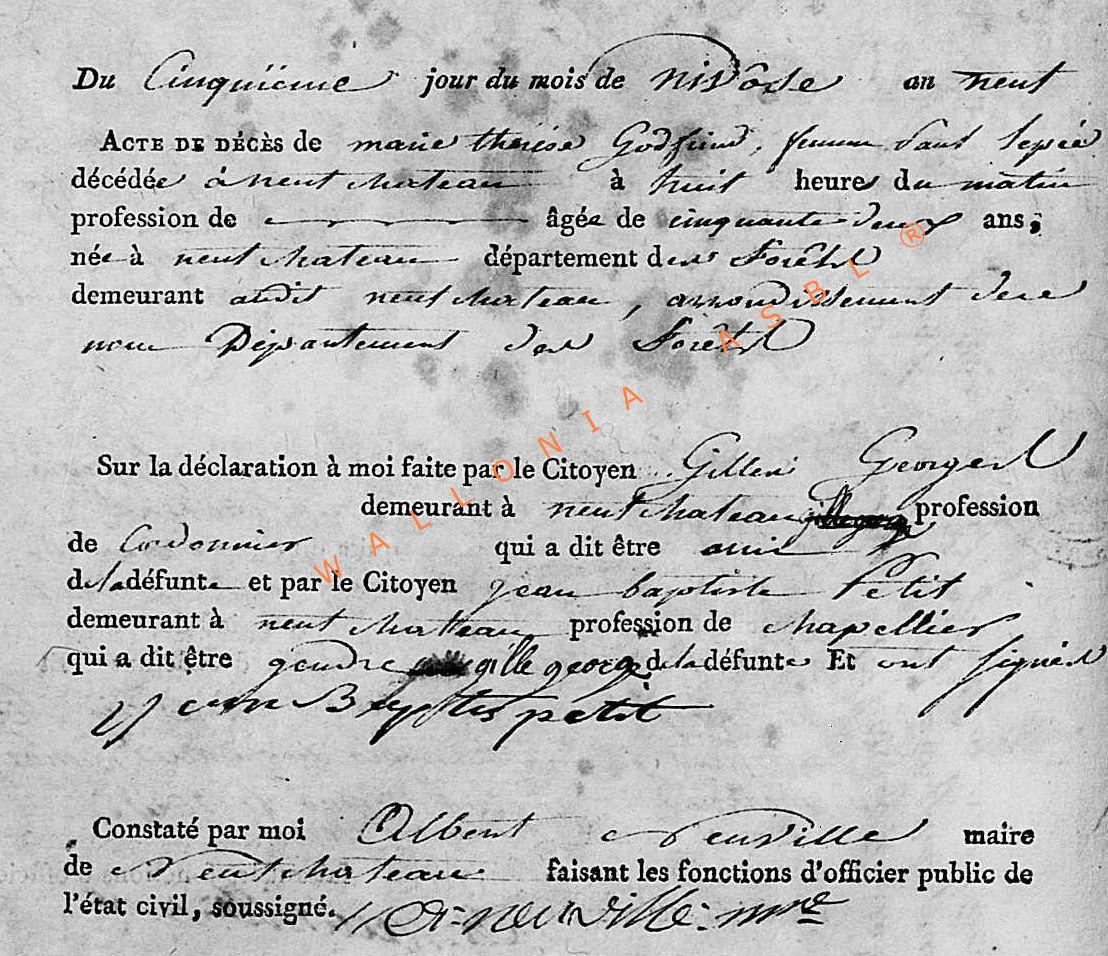 Du Cinquième jour du mois de nivôse an neuf
ACTE DE DÉCÈS de marie thérése Godfrind, femme
décédée à neufchateau à huit heures du matin
profession de âgée de cinquante deux ans;
née à neufchateau département des Forêts
demeurant audit neufchateau, arrondissement de
nom Département des Forêts
Sur la déclaration à moi faite par le Citoyen Gilles Georges
demeurant à neufchateau profession
de Cordonnier qui a dit être ami
de la défunte et par le Citoyen jean baptiste Petit
demeurant à neufchateau profession de chapellier
qui a dit être gendre gille george de la défunte Et ont signés
jean Baptiste petit
Constaté par moi Albert Neuville maire
de Neufchateau faisant les fonctions d'officier public de
l'état civil, soussigné. A: neuville: mre
WALLONIA ASBL ®